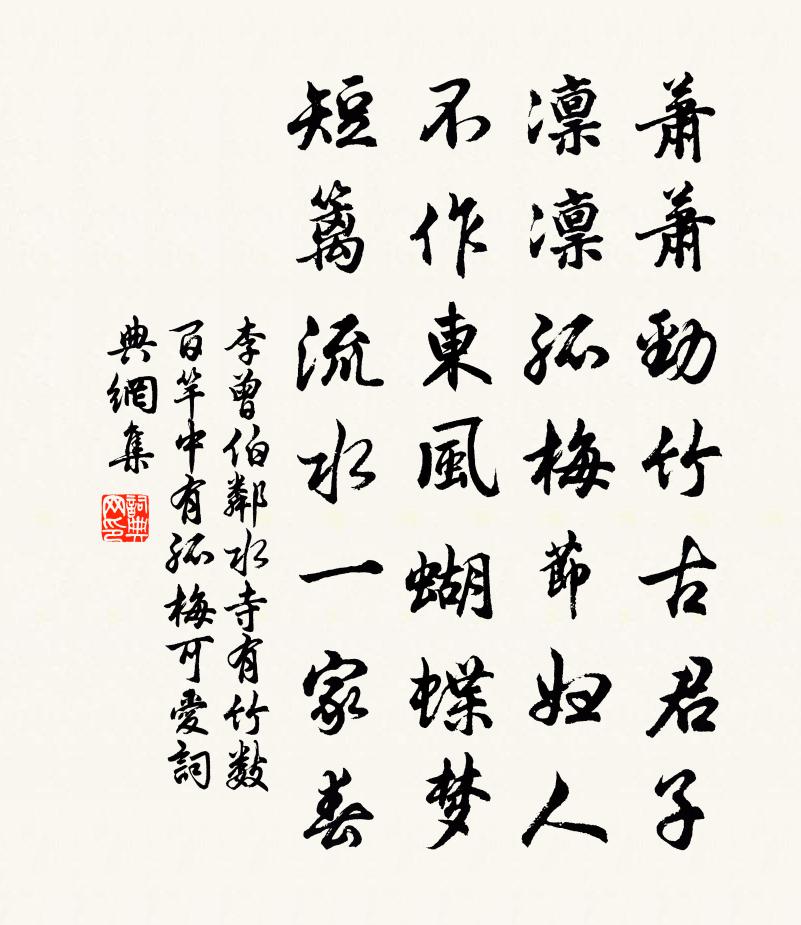 蕭蕭勁竹古君子
凜凜孤梅節婦人
不作東風蝴蝶梦
短籬流水一家春
李曾伯鄰水寺有竹數
百竿中有孤梅可愛詞
典網集
詞典
网印